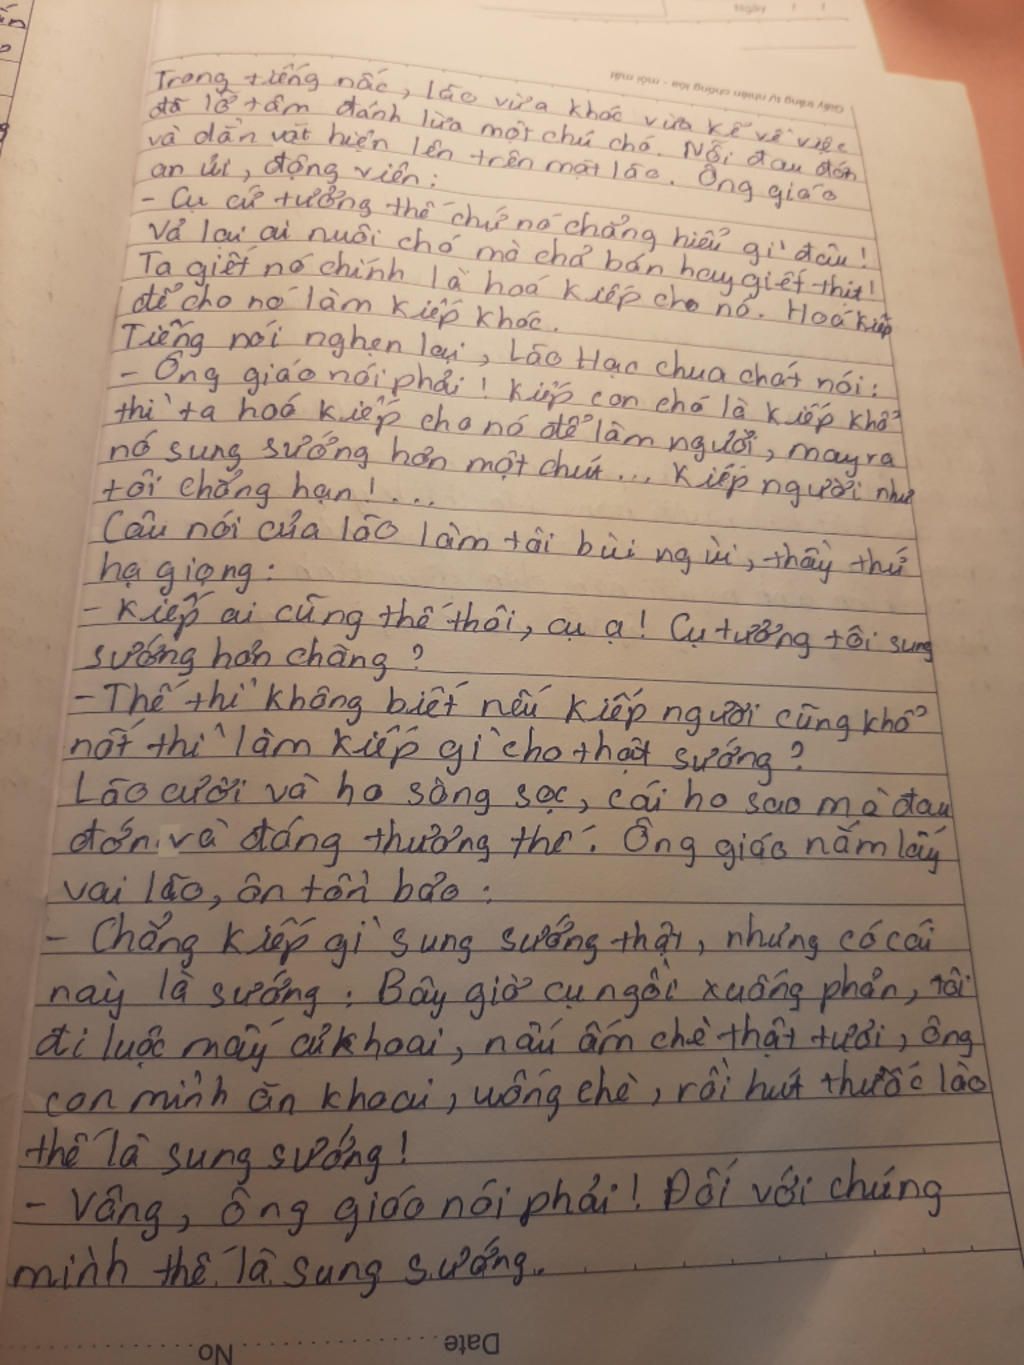 Ngày / /
Giấy trắng tự nhiên chống lóa - mỏi mắt
Trong tiếng nấc, lão vừa khóc vừa kể về việc
đã lỡ tâm đánh lừa một chú chó. Nỗi đau đớn
và dằn vặt hiện lên trên mặt lão. Ông giáo
an ủi, động viên:
- Cụ cứ tưởng thế chứ nó chẳng hiểu gì đâu!
Vả lại ai nuôi chó mà chả bán hay giết thịt!
Ta giết nó chính là hoá kiếp cho nó. Hoá kiếp
để cho nó làm kiếp khác.
Tiếng nói nghẹn lại, Lão Hạc chua chát nói:
- Ông giáo nói phải! Kiếp con chó là kiếp khổ
thì ta hoá kiếp cho nó để làm người, may ra
nó sung sướng hơn một chút... Kiếp người như
tôi chẳng hạn!...
Câu nói của lão làm tôi bùi ngùi, thầy thứ
hạ giọng:
- Kiếp ai cũng thế thôi, cụ ạ! Cụ tưởng tôi sung
sướng hơn chăng?
- Thế thì không biết nếu kiếp người cũng khổ
nốt thì làm kiếp gì cho thật sướng?
Lão cười và ho sòng sọc, cái ho sao mà đau
đớn và đáng thương thế. Ông giáo nắm lấy
vai lão, ôn tồn bảo:
- Chẳng kiếp gì sung sướng thật, nhưng có cái
này là sướng: Bây giờ cụ ngồi xuống phản, tôi
đi luộc mấy củ khoai, nấu ấm chè thật tươi, ông
con mình ăn khoai, uống chè, rồi hút thuốc lào
thế là sung sướng!
- Vâng, ông giáo nói phải! Đối với chúng
mình thế là sung sướng.
Date
No